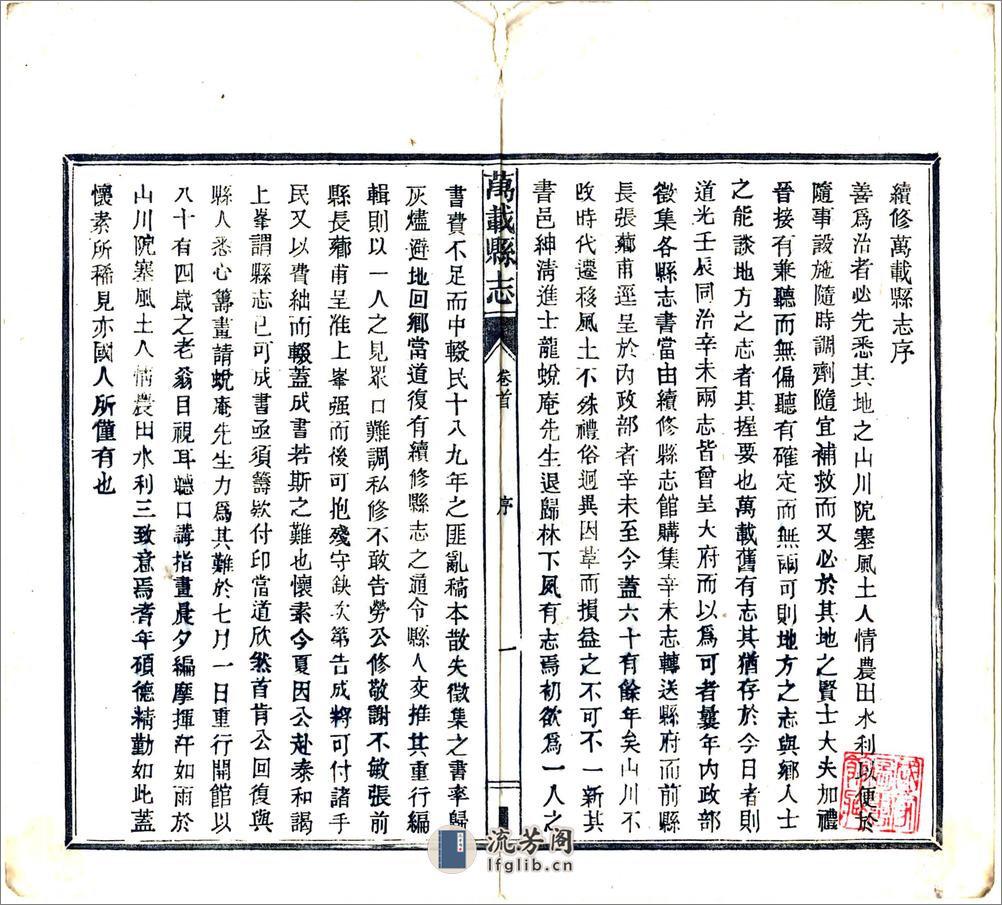 續修萬載縣志序
善爲治者必先悉其地之山川阨塞風土人情農田水利以便於
隨事設施隨時調劑隨宜補救而又必於其地之賢士大夫加禮
晉接有兼聽而無偏聽有確定而無兩可則地方之志與鄉人士
之能談地方之志者其握要也萬載舊有志其猶存於今日者則
道光壬辰同治辛未兩志皆曾呈大府而以爲可者曩年內政部
徵集各縣志書當由續修縣志館購集辛未志轉送縣府而前縣
長張薌甫逕呈於內政部者辛未至今蓋六十有餘年矣山川不
改時代遷移風土不殊禮俗迥異因革而損益之不可不一新其
書邑紳淸進士龍蛻庵先生退歸林下夙有志焉初欲爲一人之
萬載縣志
卷首
序
一
書費不足而中輟民十八九年之匪亂稿本散失徵集之書率歸
灰燼避地回鄉當道復有續修縣志之通令縣人交推其重行編
輯則以一人之見眾口難調私修不敢告勞公修敬謝不敏張前
縣長薌甫呈准上峯强而後可抱殘守缺次第告成將可付諸手
民又以費絀而輟蓋成書若斯之難也懷素今夏因公赴泰和謁
上峯謂縣志已可成書亟須籌欵付印當道欣然首肯公回復與
縣人悉心籌畫請蛻庵先生力爲其難於七月一日重行開館以
八十有四歲之老翁目視耳聽口講指畫晨夕編摩揮汗如雨於
山川阨塞風土人情農田水利三致意焉耆年碩德精勤如此蓋
懷素所稀見亦國人所僅有也
流芳阁
lfglib.cn